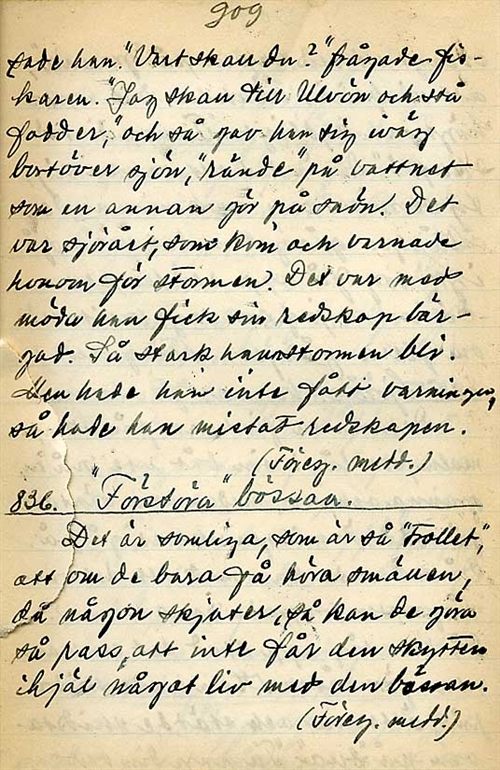 909
sade han. "Vart skall du?" frågade fis-
karen. "Jag skall till Ulvön och stå
fadder," och så gav han sig iväg
bortöver sjön, "rände" på vattnet
som en annan gör på snön. Det
var sjörået, som kom och varnade
honom för stormen. Det var med
möda han fick sin redskap bär-
gad. Så stark hann stormen bli.
Men hade han inte fått varningen,
så hade han mistat redskapen.
(Föreg. medd.)
836. "Förstöra" bössan.
Det är somliga, som är så "Trollet",
att om de bara få höra smällen,
då någon skjuter, så kan de göra
så pass, att inte får den skytten
ihjäl något liv med den bössan.
(Föreg. medd.)